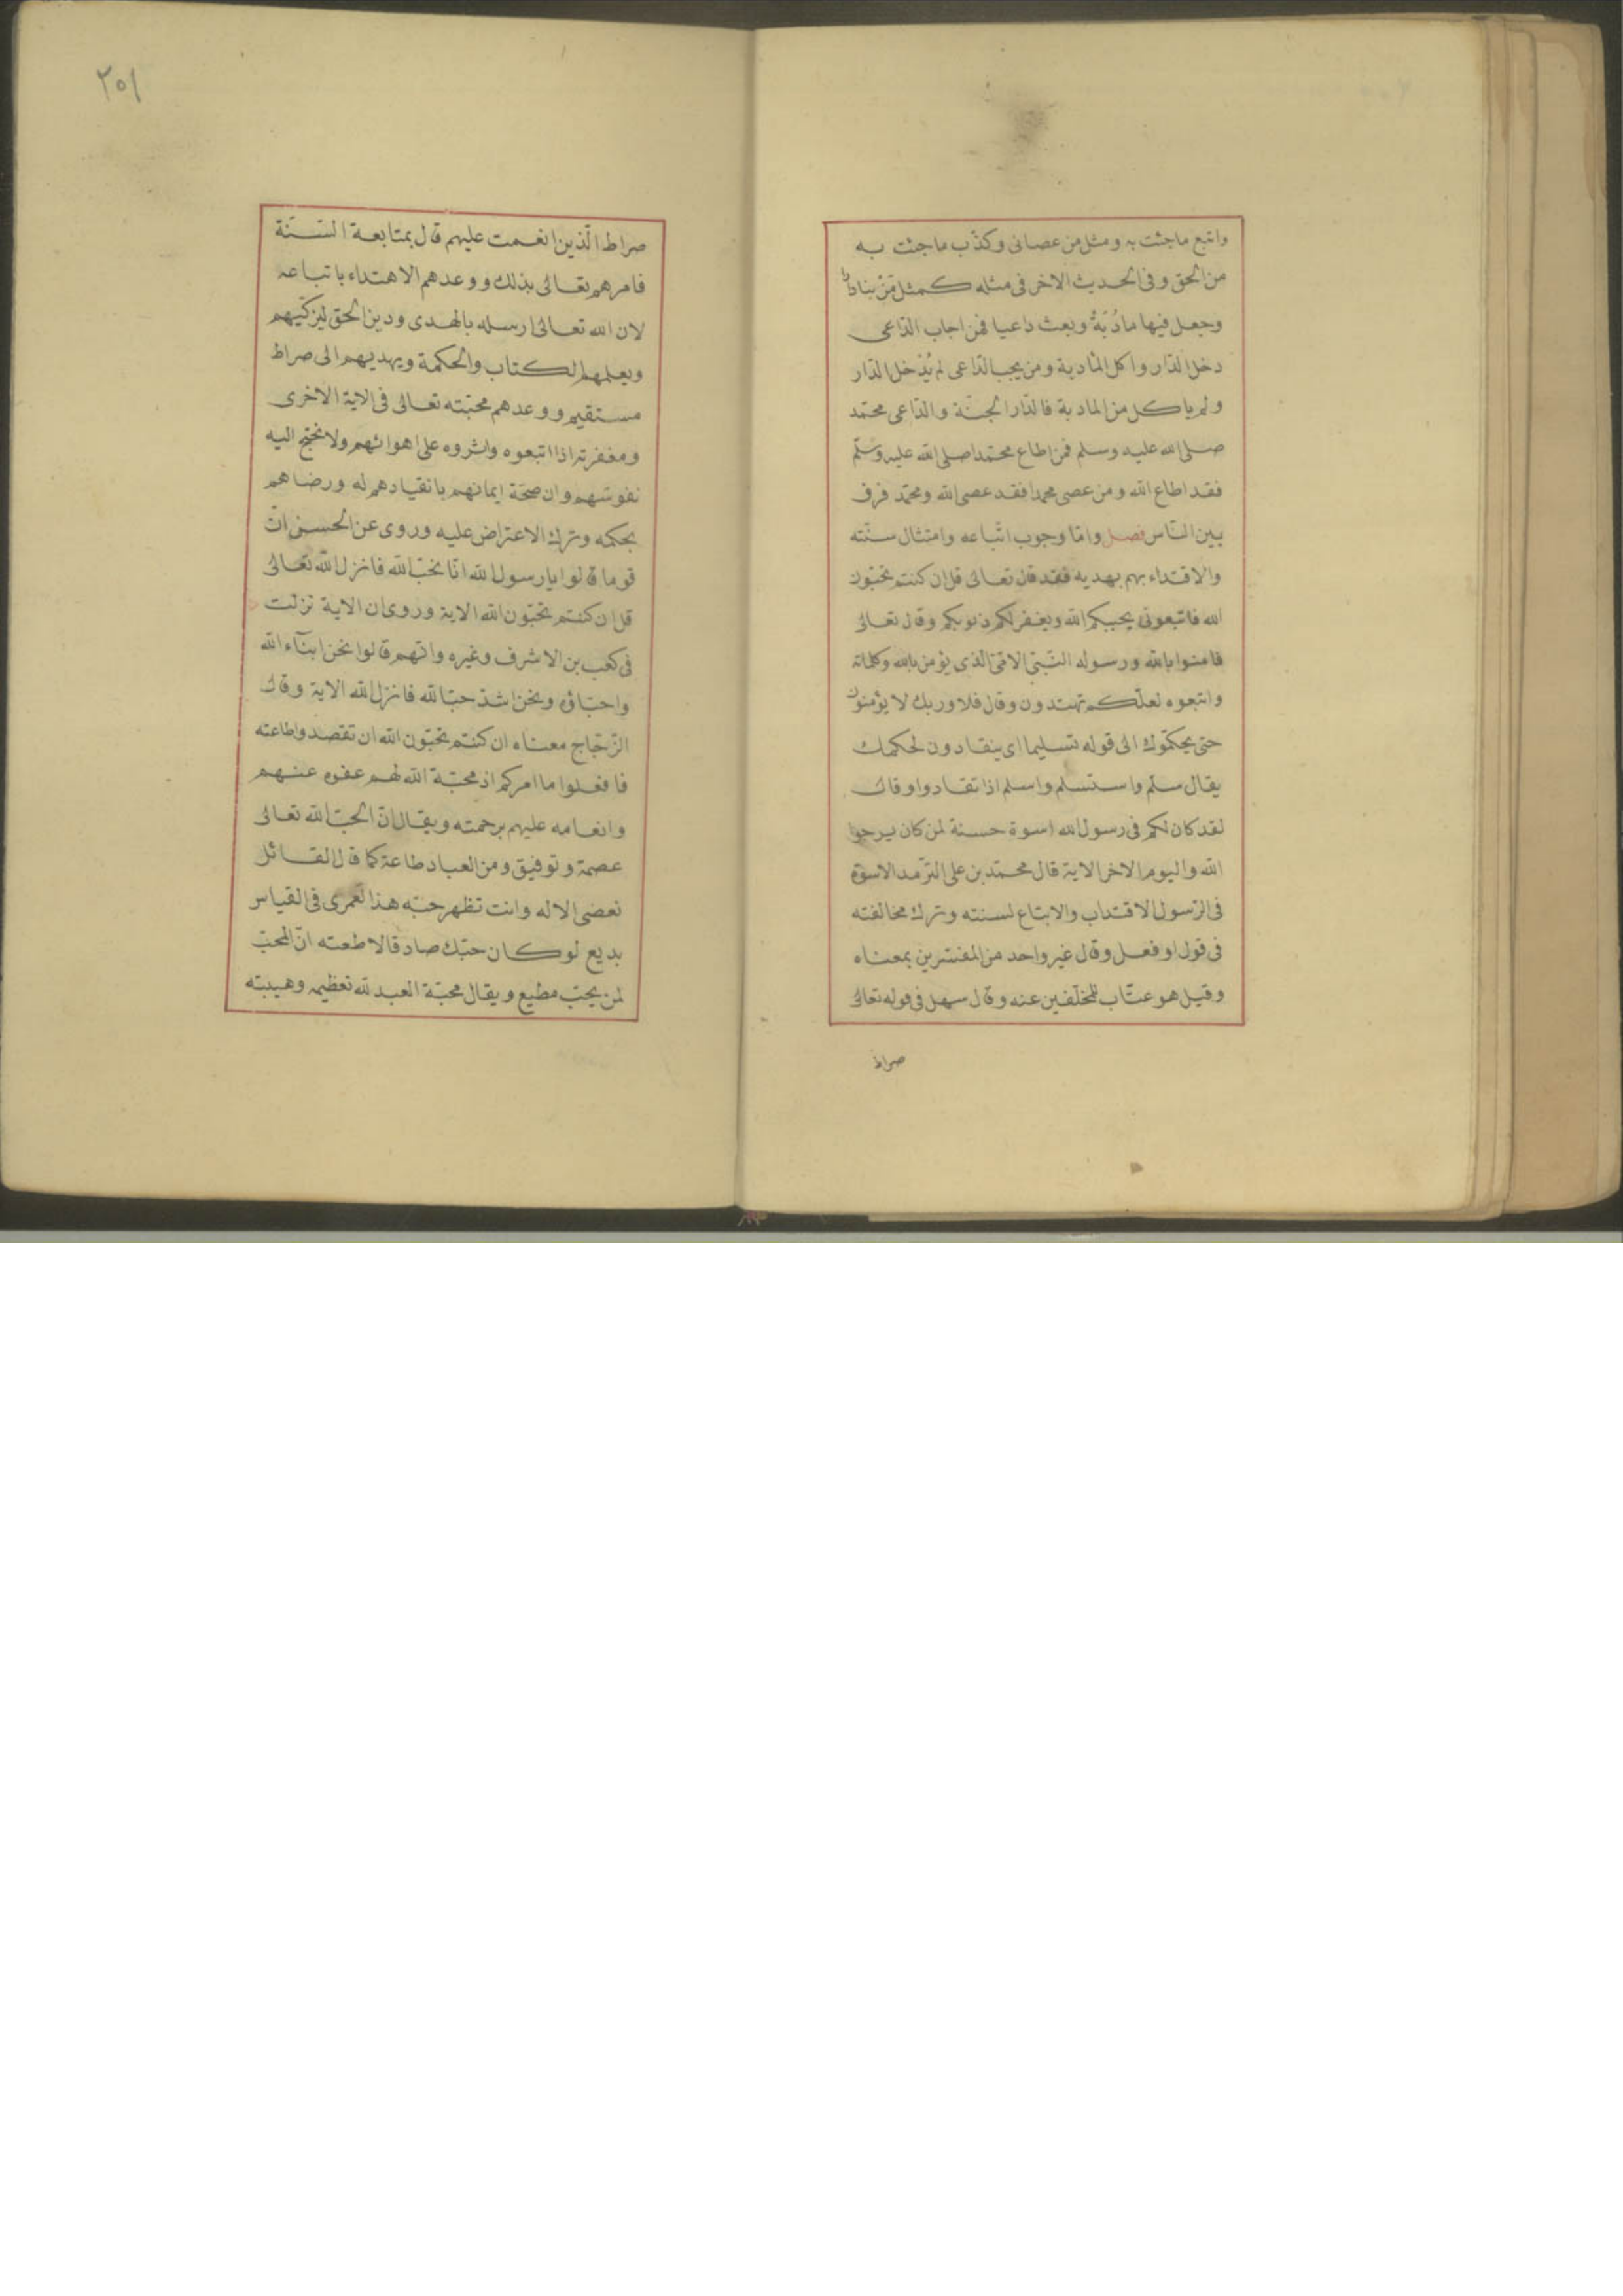 واتبع ماجئت به ومثل من عصانى وكذّب ماجئت به
من الحق وفى الحديث الاخر فى مثله كمثل مَنْ بنا دارا
وجعل فيها مادُبَةً وبعث داعيا فمن اجاب الدّاعى
دخل الدّار واكل المأدبة ومن يجب الدّاعى لم يُدْخل الدّار
ولم ياكل من المادبة فالدّار الجنّة والدّاعى محمّد
صلى الله عليه وسلم فمن اطاع محمّدا صلى الله عليه وسلّم
فقد اطاع الله ومن عصى محمدا فقد عصى الله ومحمّد فرق
بين النّاس فصل وامّا وجوب اتّباعه وامتثال سنّته
والاقتداء بهم بهديه فقد قال تعالى قل ان كنتم تحبّون
الله فاتّبعونى يحببكم الله ويغفر لكم ذنوبكم وقال تعالى
فامنوا بالله ورسوله النّبىّ الامّىّ الذى يؤمن بالله وكلماته
واتبعوه لعلّكم تهتدون وقال فلا وربك لا يؤمنون
حتى يحكّموك الى قوله تسليما اى ينقادون لحكمك
يقال سلّم واستسلم واسلم اذا تقادوا وقال
لقد كان لكم فى رسول الله اسوة حسنة لمن كان يرجوا
الله واليوم الاخر الاية قال محمّد بن على التّرمد الاسوة
فى الرّسول الاقتداب والابتاع لسنته وترك مخالفته
فى قول او فعل وقال غير واحد من المفسّرين بمعناه
وقيل هو عتّاب للمخلّفين عنه وقال سهل فى قوله تعالى
صراط
٢٥١
صراط الّذين انعمت عليهم قال بمتابعة السّنّة
فامرهم تعالى بذلك ووعدهم الاهتداء باتباعه
لان الله تعالى ارسله بالهدى ودين الحق ليزكّيهم
ويعلمهم الكتاب والحكمة ويهديهم الى صراط
مستقيم ووعدهم محبّته تعالى فى الاية الاخرى
ومغفرته اذا اتبعوه واثروه على اهوائهم ولا تحتج اليه
نفوسهم وان صحّة ايمانهم بانقيادهم له ورضاهم
بحكمه وترك الاعتراض عليه وروى عن الحسن انّ
قوما قالوا يا رسول الله انّا نحبّ الله فانزل الله تعالى
قل ان كنتم تحبّون الله الاية وروى ان الاية نزلت
فى كعب بن الاشرف وغيره وانّهم قالوا نحن ابنآء الله
واحبّاؤه ونحن اشدّ حبّا لله فانزل الله الاية وقال
الزّجّاج معناه ان كنتم تحبّون الله ان تقصدوا طاعته
فافعلوا ما امركم اذ محبّة الله لهم عفوه عنهم
وانعامه عليهم برحمته ويقال انّ الحبّ الله تعالى
عصمة وتوفيق ومن العباد طاعة كما قال القائل
تعصى الاله وانت تظهر حبّه هذا لعمرى فى القياس
بديع لو كان حبّك صادقا لاطعته انّ المحبّ
لمن يحبّ مطيع ويقال محبّة العبد لله تعظيمه وهيبته